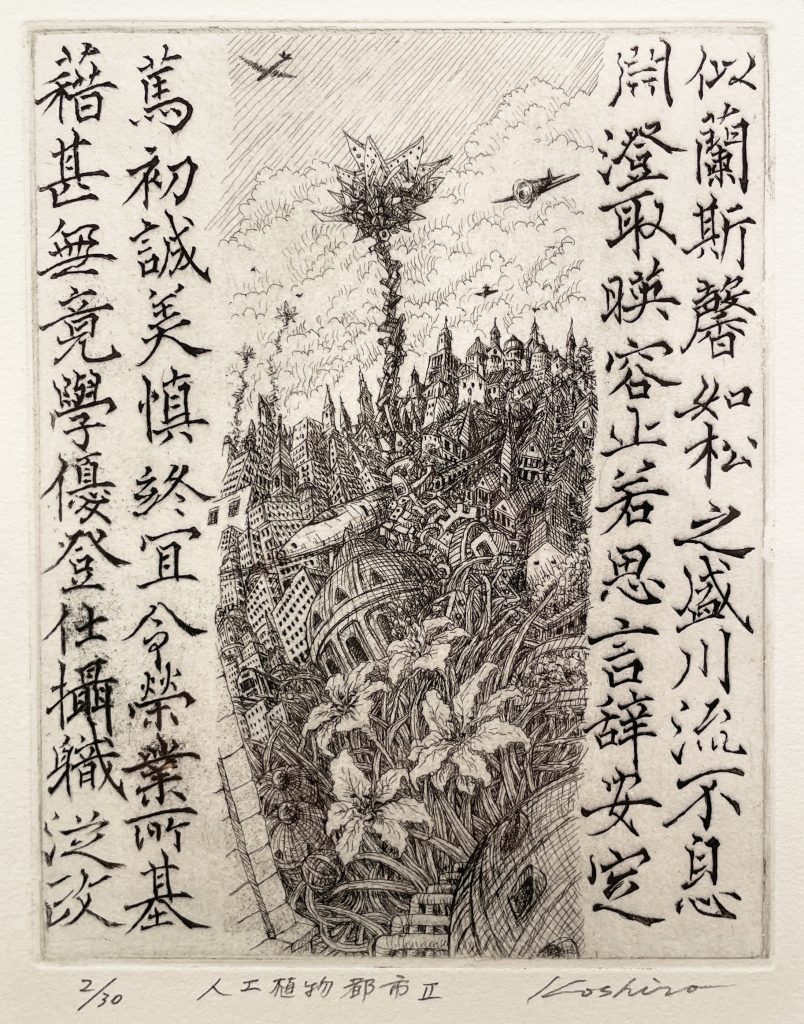 似蘭斯馨如松之盛川流不息
淵澄取暎容止若思言辞安定
篤初誠美慎終宜令榮業所基
藉甚無竟學優登仕攝職従政
2/30
人工植物都市Ⅱ
Koshiro